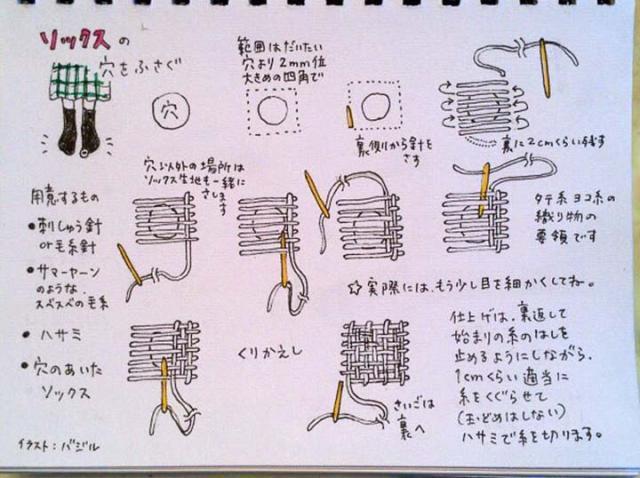 ソックスの
穴をふさぐ
穴
範囲はだいたい
穴より2mm位
大きめの四角で
裏側から針を
さす
裏に2cmくらい残す
穴以外の場所は
ソックス生地も一緒に
さします
タテ糸ヨコ糸の
織り物の
要領です
用意するもの
•刺しゅう針
or毛糸針
•サマーヤーン
のような、
スベスベの毛糸
•ハサミ
•穴のあいた
ソックス
☆実際には、もう少し目を細かくしてね。
くりかえし
さいごは
裏へ
仕上げは、裏返して
始まりの糸のはしを
止めるようにしながら、
1cmくらい適当に
糸をくぐらせて
(玉どめはしない)
ハサミで糸を切ります。
イラスト:バジル